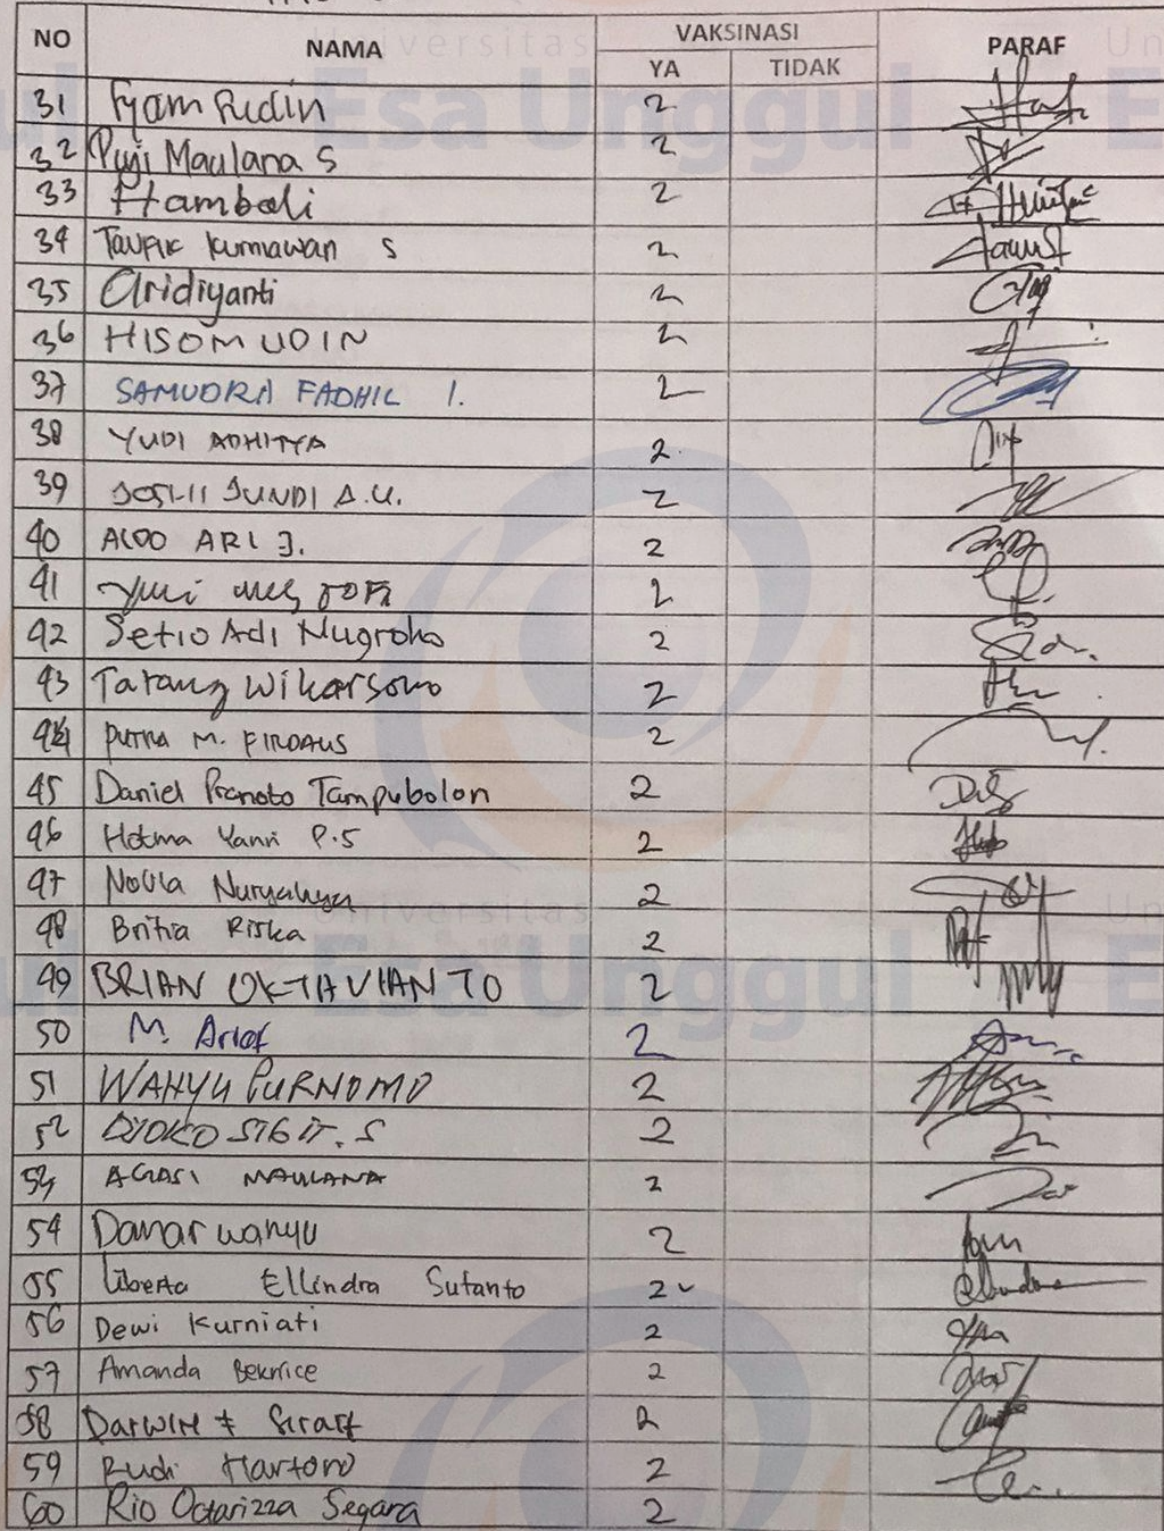 NO NAMA VAKSINASI PARAF
YA TIDAK
Universitas
Esa Unggul
31 Syamsudin 2
32 Puji Maulana S 2
33 Hambali 2
34 Taufik Kurniawan S 2
35 Aridiyanti 2
36 HISOMUDIN 2
37 SAMUDRA FADHIL I. 2
38 YUDI ADHITYA 2
39 JUNDI A.U. 2
40 ALDO ARI J. 2
41 Yuli 2
42 Setio Adi Nugroho 2
43 Tatang Wikarsono 2
44 PUTRA M. FIRDAUS 2
45 Daniel Pranoto Tampubolon 2
46 Hotma Yanri P.S 2
47 Novia Nuryahya 2
48 Britia Riska 2
Universitas
Esa Unggul
49 BRIAN OKTAVIANTO 2
50 M. Arief 2
51 WAHYU PURNOMO 2
52 DJOKO SIGIT. S 2
53 AGASI MAULANA 2
54 Damar wahyu 2
55 Liberta Ellindra Sutanto 2
56 Dewi Kurniati 2
57 Amanda Bernice 2
58 Darwin F Sirait 2
59 Rudi Hartono 2
60 Rio Octarizza Segara 2